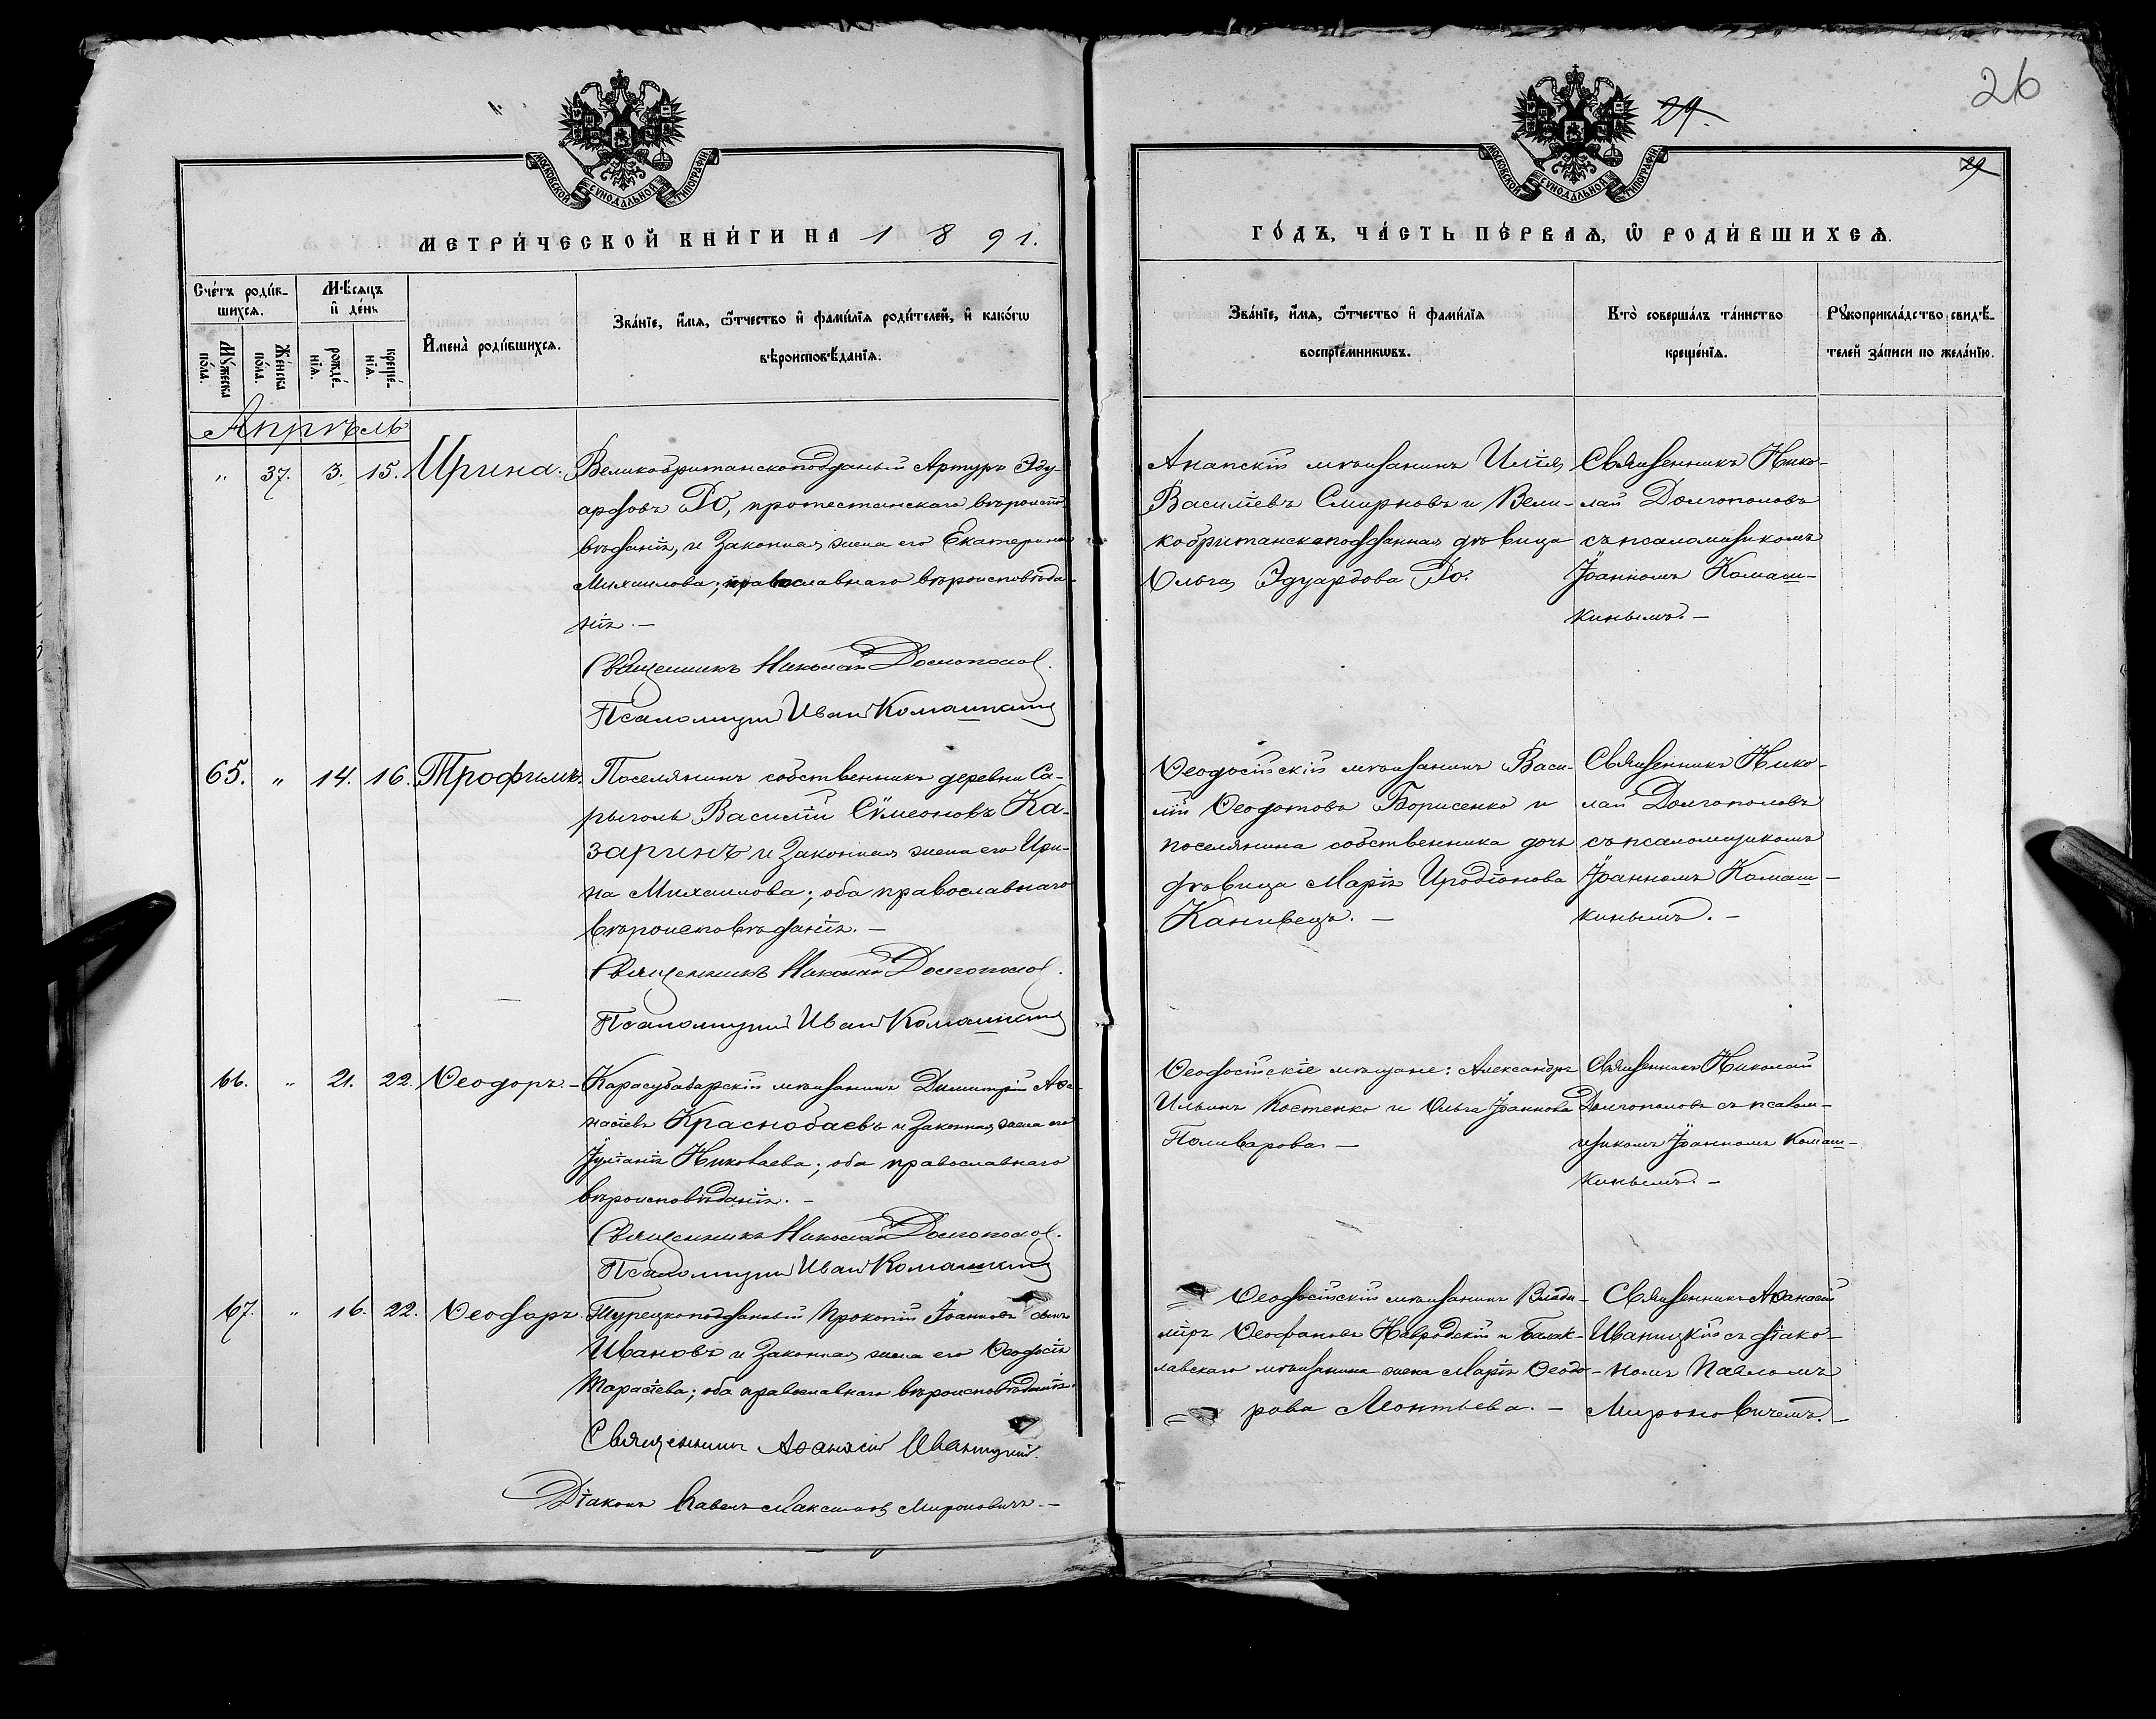 26
29.
29
МОСКОВСКОЙ СѴНОДАЛЬНОЙ ТИПОГРАФІИ
МОСКОВСКОЙ СѴНОДАЛЬНОЙ ТИПОГРАФІИ
МЕТРИ́ЧЕСКОЙ КНИ́ГИ НА 1891.
ГО́ДЪ, ЧА́СТЬ ПЕ́РВАѦ, Ѡ҆ РОДИ́ВШИХСѦ.
Сче́тъ роди́в-
шихсѧ.
Мѣ́сѧцъ
и҆ де́нь
Мꙋ́жеска
по́ла.
Же́нска
по́ла.
рожде́-
нїѧ.
креще́-
нїѧ.
И҆мена̀ роди́вшихсѧ.
Зва́нїе, и҆́мѧ, ѻ҆́тчество и҆ фами́лїѧ роди́телей, и҆ како́гѡ
вѣроисповѣ́данїѧ.
Зва́нїе, и҆́мѧ, ѻ҆́тчество и҆ фами́лїѧ
воспрїе́мникѡвъ.
Кто̀ соверша́лъ та́инство
креще́нїѧ.
Рꙋкоприкла́дство свидѣ́-
телей за́писи по жела́нїю.
Апрѣль
" 37. 3. 15. Ирина. Великобританскоподданый Артуръ Эду-
ардовъ Ро, протестанскаго вѣроиспо-
вѣданія, и законная жена его Екатерина
Михаилова; православнаго вѣроисповѣда-
нія. —
Священникъ Николай Долгополов.
Псаломщик Иван Комашкин
Анапскій мѣщанинъ Илія
Васильевъ Смирновъ и Вели-
кобританскоподданная дѣвица
Ольга Эдуардова Ро.
Священникъ Нико-
лай Долгополовъ
съ псаломщикомъ
Іоанномъ Комаш-
кинымъ. —
65. " 14. 16. Трофимъ. Поселянинъ собственникъ деревни Са-
рыголь Василій Сѵмеоновъ Ка-
заринъ и законная жена его Ири-
на Михаилова; оба православнаго
вѣроисповѣданія. —
Священникъ Николай Долгополов.
Псаломщик Иван Комашкин
Ѳеодосійскій мѣщанинъ Васи-
лій Ѳеодотовъ Борисенко и
поселянина собственника дочь
дѣвица Марія Иродіонова
Канивецъ. —
Священникъ Нико-
лай Долгополовъ
съ псаломщикомъ
Іоанномъ Комаш-
кинымъ. —
66. " 21. 22. Ѳеодоръ — Карасубазарскій мѣщанинъ Димитрій Аѳа-
насіевъ Краснобаевъ и законная жена его
Іуліанія Николаева; оба православнаго
вѣроисповѣданія. —
Священникъ Николай Долгополов.
Псаломщик Иван Комашкин
Ѳеодосійскіе мѣщане: Александръ
Ильинъ Костенко и Ольга Іоаннова
Поливарова —
Священникъ Николай
Долгополовъ съ псалом-
щикомъ Іоанномъ Комаш-
кинымъ. —
67. " 16. 22. Ѳеодоръ. Турецкоподданный Прокопій Іоанновъ сынъ
Ивановъ и законная жена его Ѳеодосія
Тарасіева; оба православнаго вѣроисповѣданія.
Священникъ Аѳанасій Иваницкій.
Діаконъ Павелъ Мироновичъ. —
Ѳеодосійскій мѣщанинъ Влади-
міръ Ѳеофановъ Навродскій и Балак-
лавскаго мѣщанина жена Марія Ѳеодо-
рова Леонтьева. —
Священникъ Аѳанасій
Иваницкій съ діако-
номъ Павломъ
Мироновичемъ. —